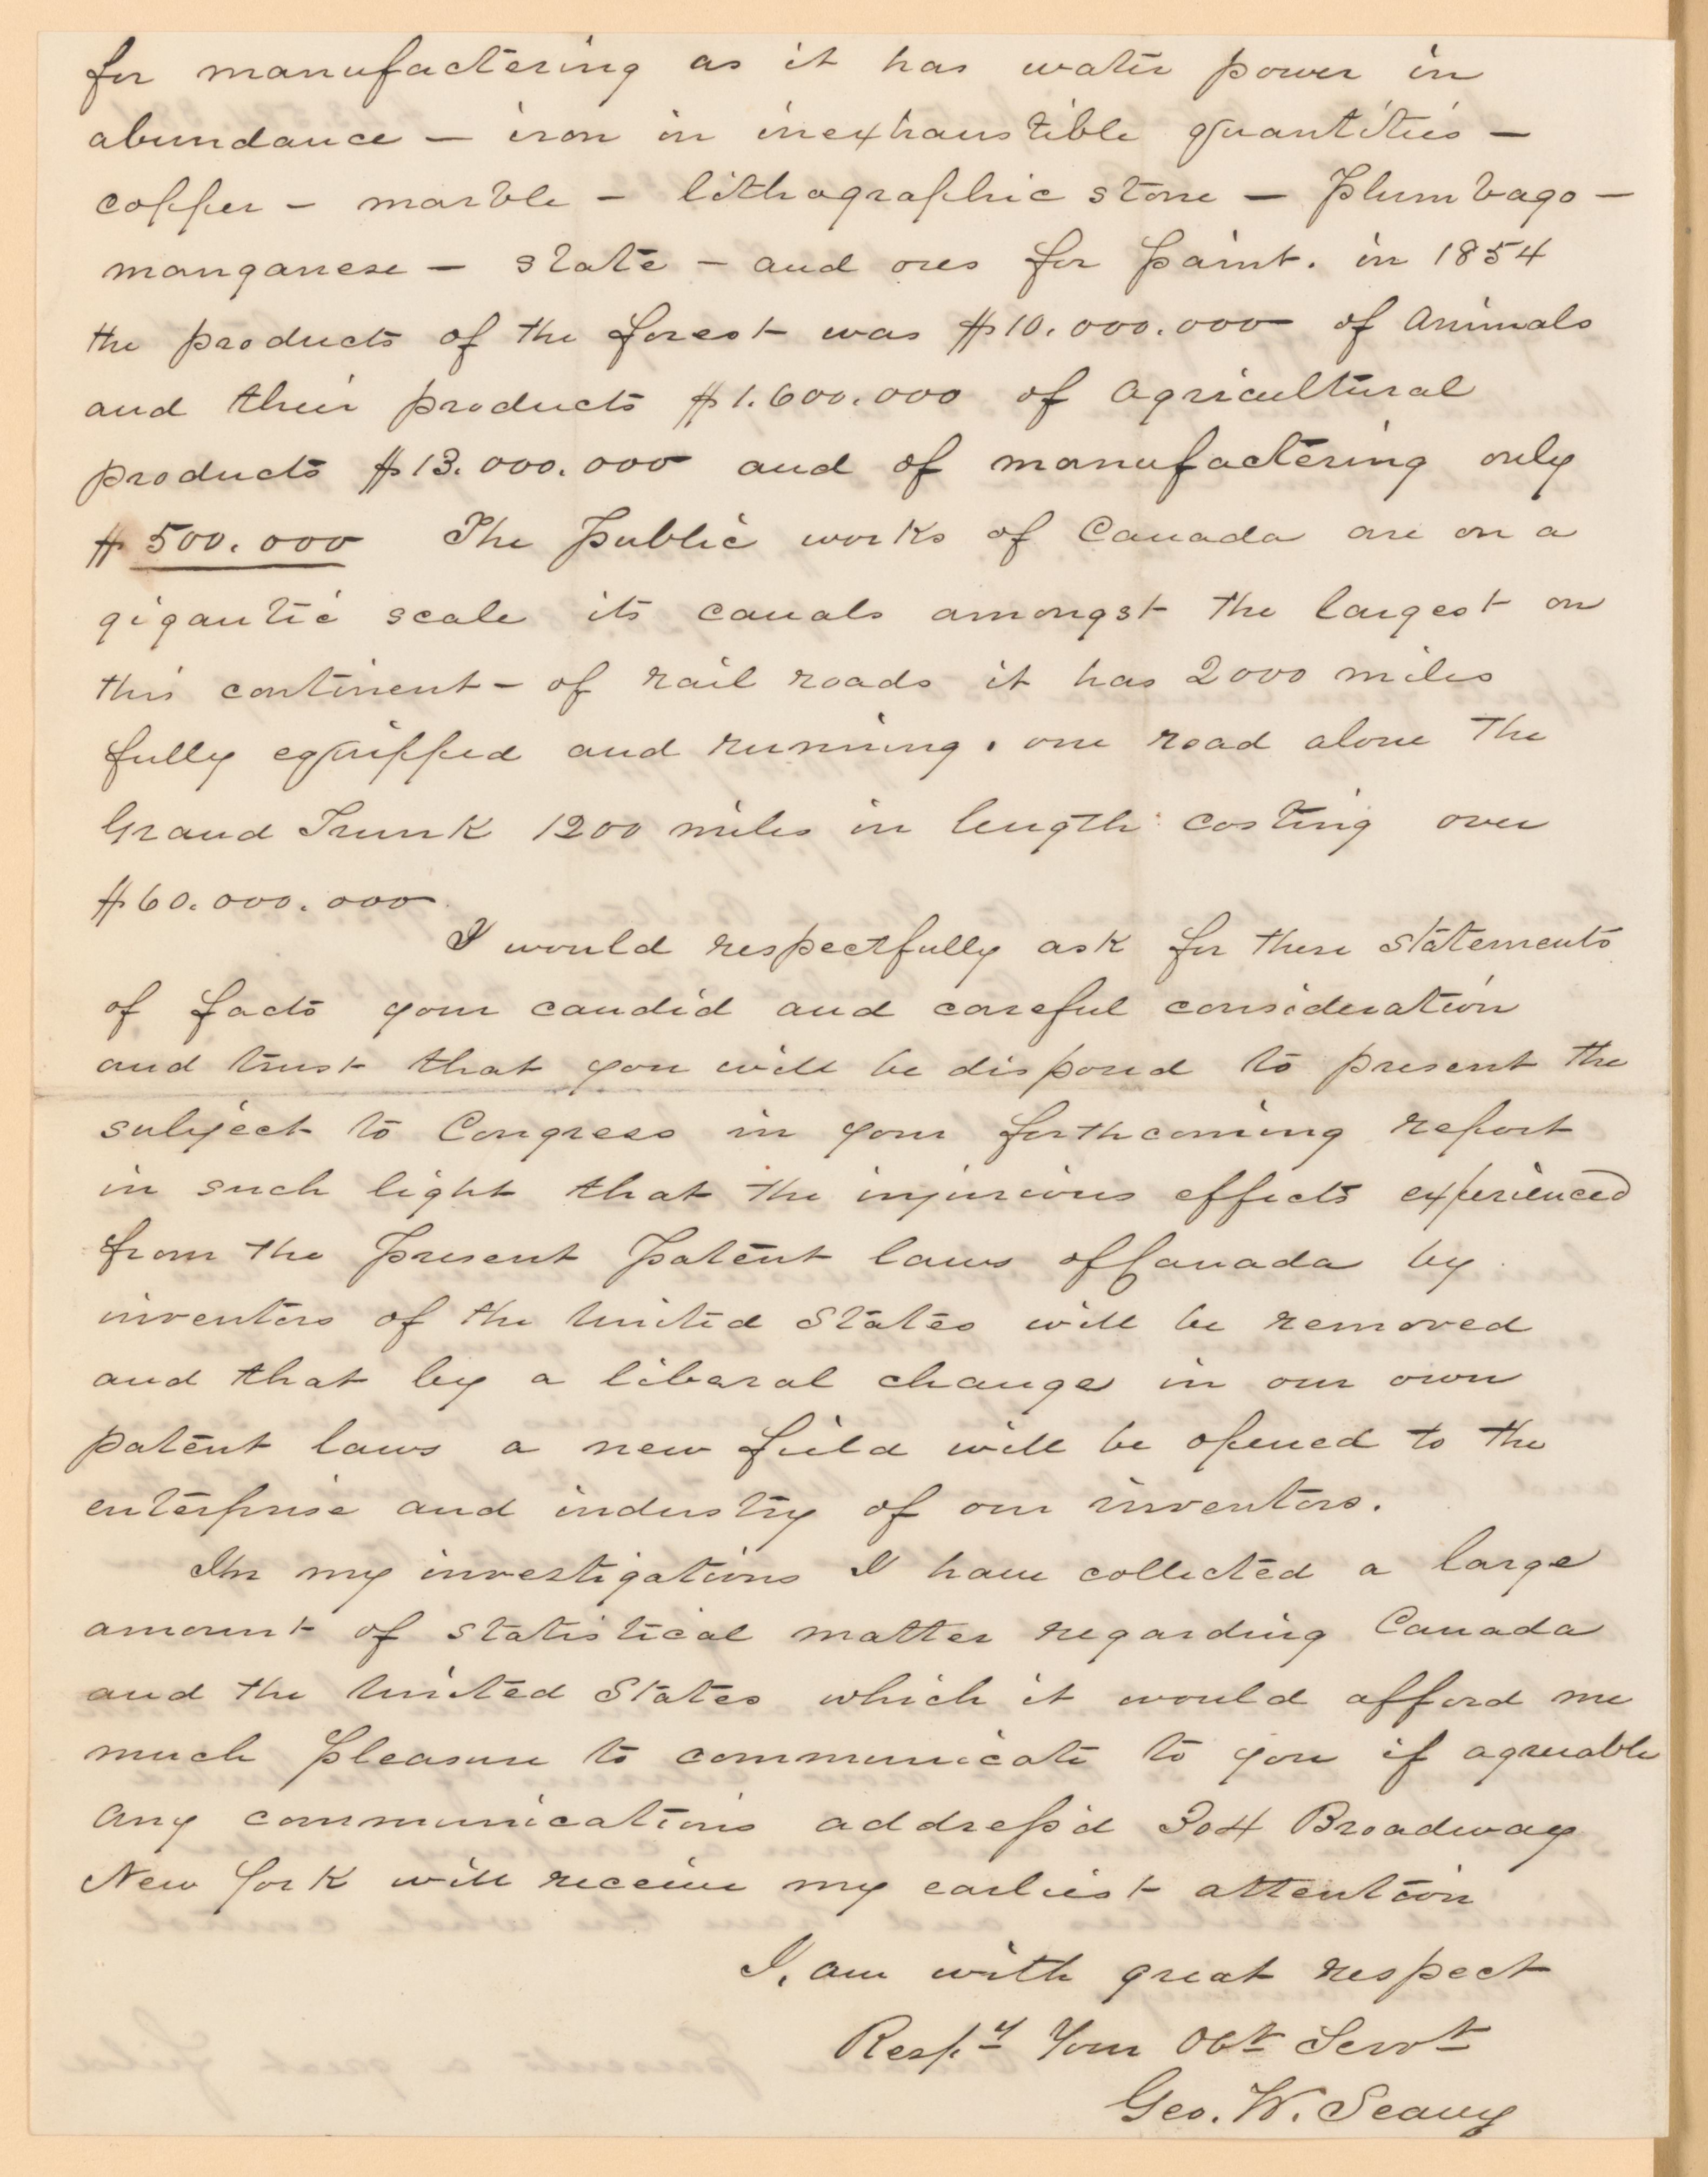 for manufactering as it has water power in
abundance – iron in inexhaustible quantities –
copper – marble – lithographic stone – Plumbago –
manganese – slate – and ores for paint. in 1854
the products of the forest was $10.000.000 of Animals
and their products $1.600.000 of agricultural
products $13.000.000 and of manufactering only
$500.000 The Public works of Canada are on a
gigantic scale its canals amongst the largest on
this continent – of rail roads it has 2000 miles
fully equipped and running. one road alone the
Grand Trunk 1200 miles in length costing over
$60.000.000
I would respectfully ask for these statements
of facts your candid and careful consideration
and trust that you will be disposed to present the
subject to Congress in your forthcoming report
in such light that the injurious effects experienced
from the Present Patent laws of Canada by
inventors of the United States will be removed
and that by a liberal change in our own
patent laws a new field will be opened to the
enterprise and industry of our inventors.
In my investigations I have collected a large
amount of statistical matter regarding Canada
and the United States which it would afford me
much pleasure to communicate to you if agreeable
Any communications address'd 304 Broadway
New York will receive my earliest attention
I. am with great respect
Respy Your Obt Servt
Geo. W. Seavey